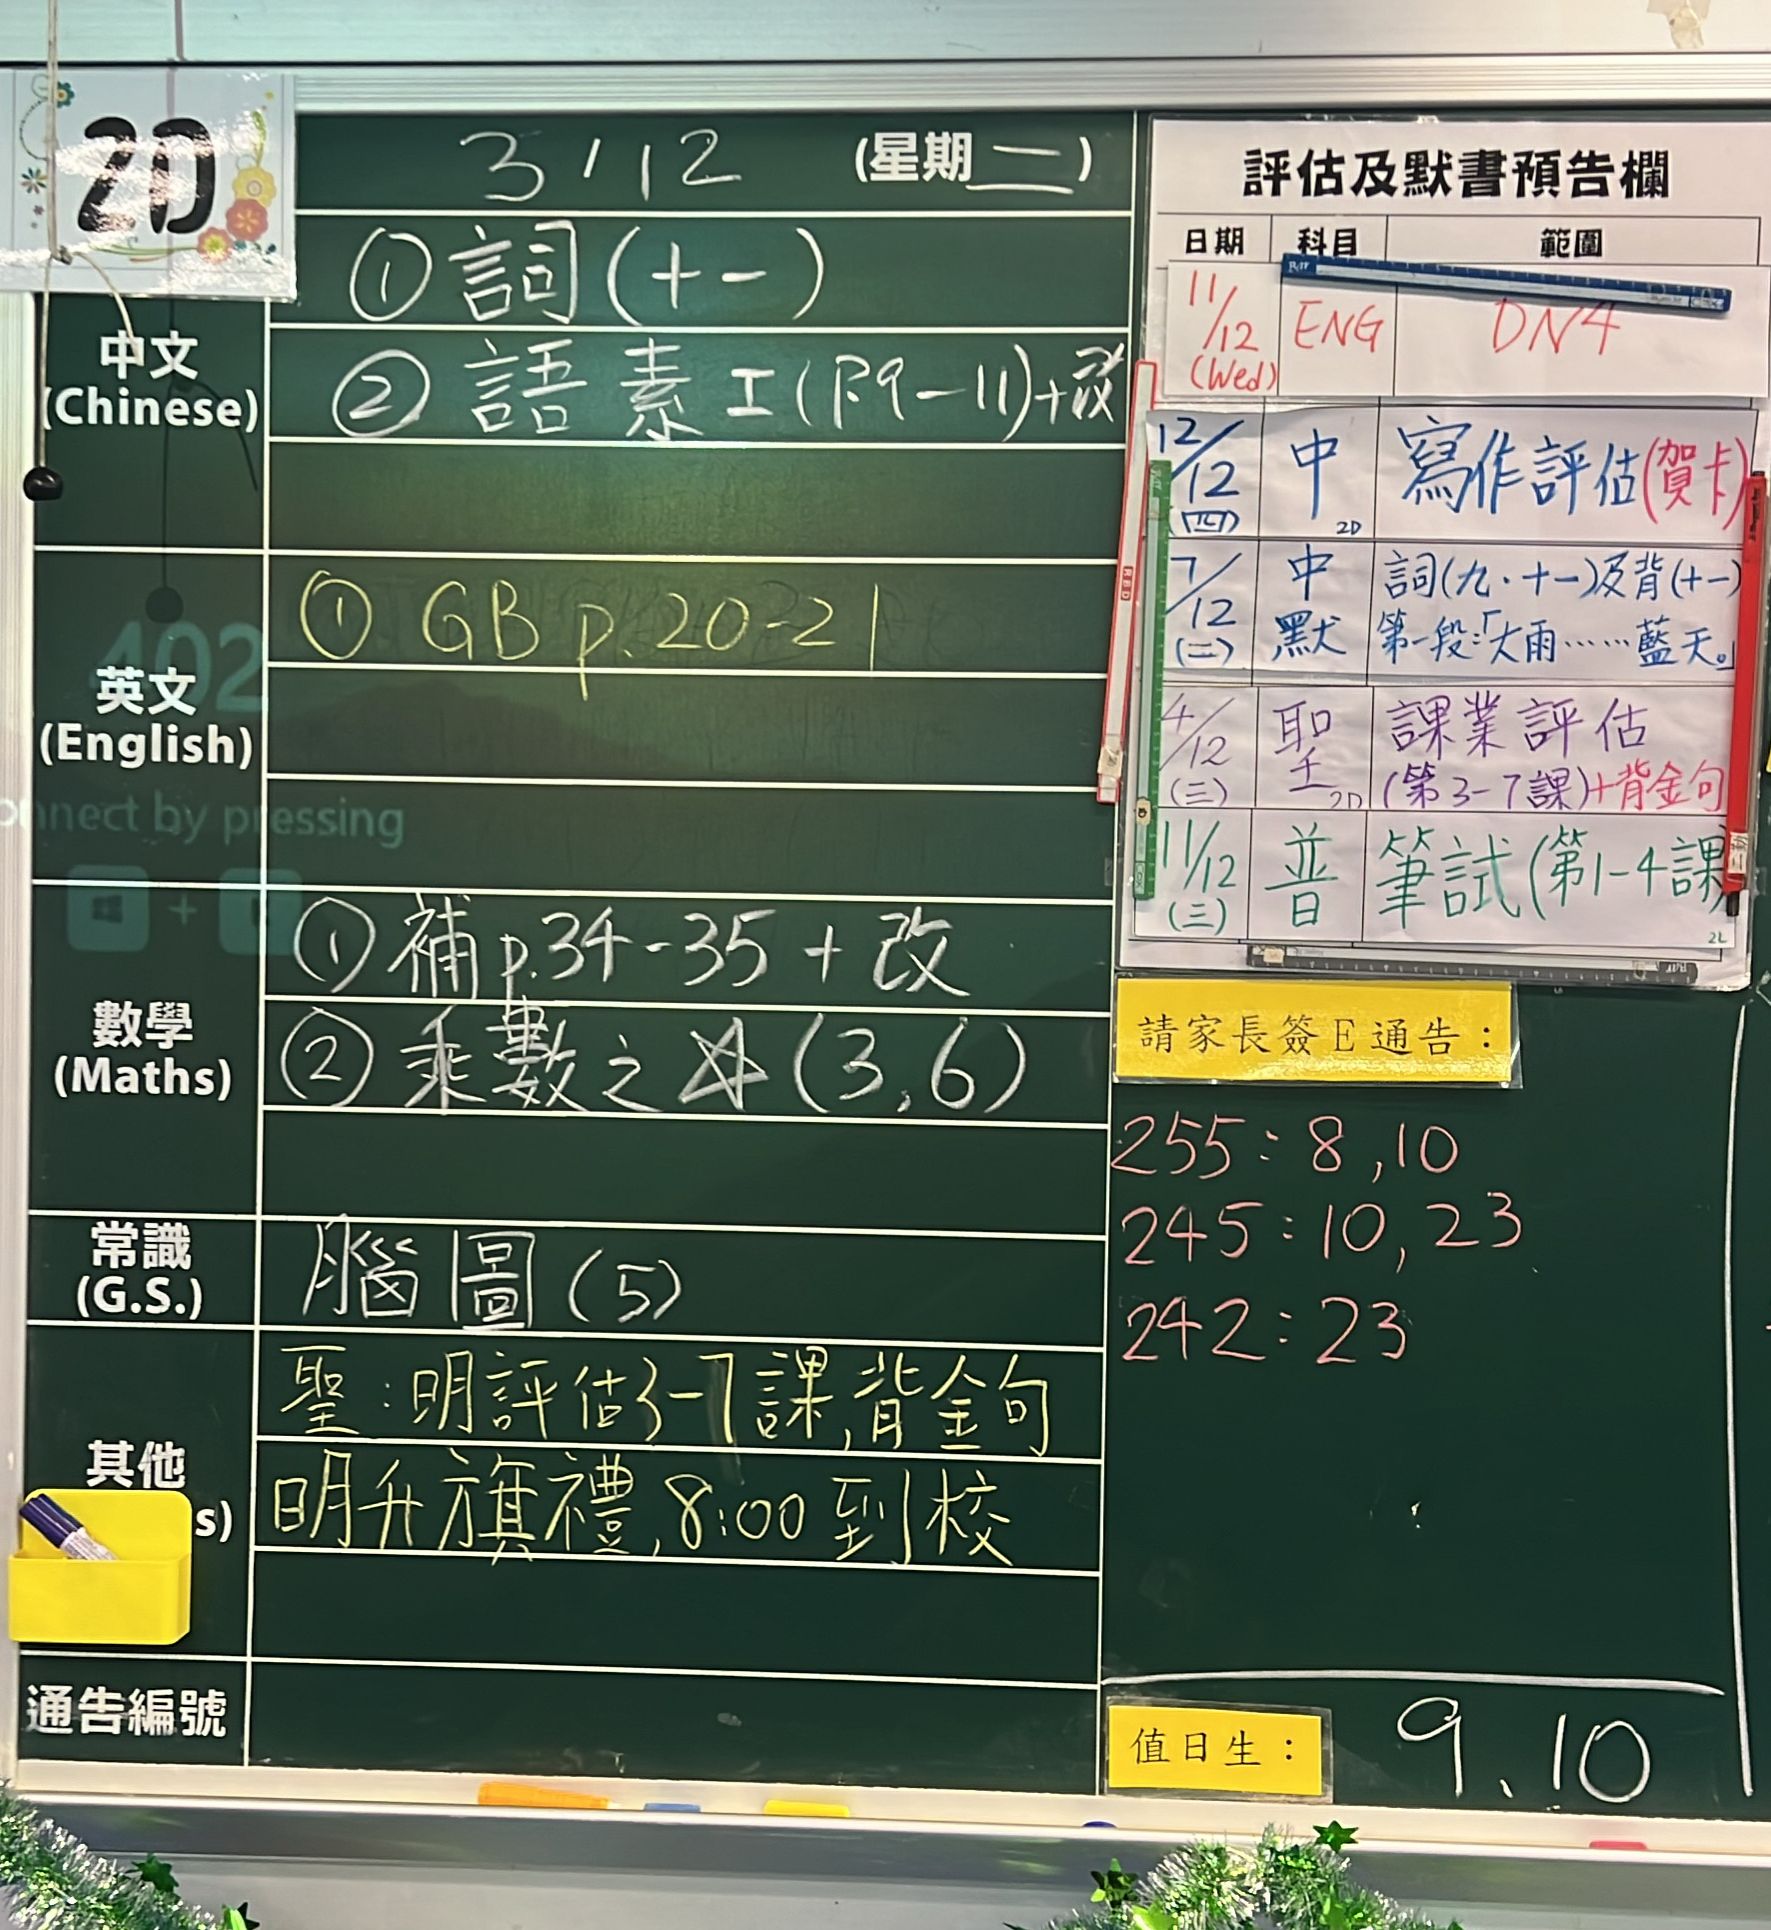 2D
3/12 (星期二)
中文
(Chinese)
①詞(十一)
②語素工(P.9-11)+改
英文
(English)
①GB p.20-21
402
onnect by pressing
數學
(Maths)
①補p.34-35+改
②乘數之☆(3,6)
常識
(G.S.)
腦圖(5)
其他
s)
聖:明評估3-7課,背金句
明升旗禮,8:00到校
通告編號
評估及默書預告欄
日期 科目 範圍
11/12 (Wed) ENG DN4
12/12 (四) 中 2D 寫作評估(賀卡)
7/12 (二) 中默 詞(九、十一)及背(十一)
第一段:「大雨……藍天。」
4/12 (三) 聖 2D 課業評估
(第3-7課)+背金句
11/12 (三) 普 筆試(第1-4課)
2L
請家長簽E通告:
255:8,10
245:10,23
242:23
值日生: 9.10